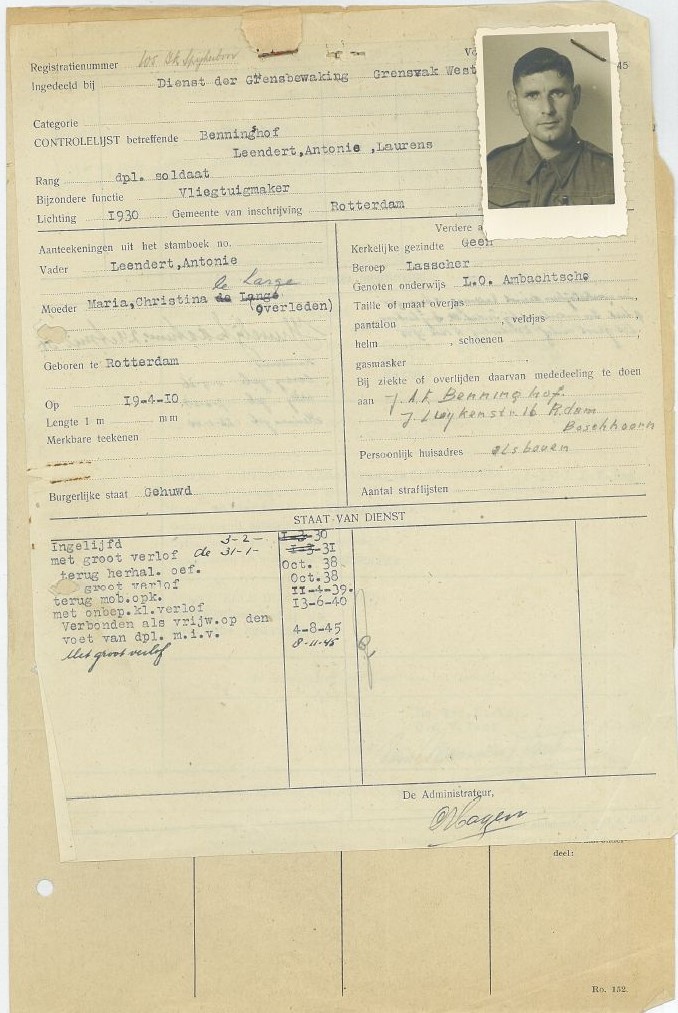 Registratienummer
Vo 45
Ingedeeld bij Dienst der Grensbewaking Grensvak West
Categorie
CONTROLELIJST betreffende Benninghof
Leendert,Antonie ,Laurens
Rang dpl. soldaat
Bijzondere functie Vliegtuigmaker
Lichting 1930 Gemeente van inschrijving Rotterdam
Aanteekeningen uit het stamboek no.
Vader Leendert,Antonie
le Large
Moeder Maria,Christina de Lange (overleden)
Geboren te Rotterdam
Op 19-4-10
Lengte 1 m mm
Merkbare teekenen
Burgerlijke staat Gehuwd
Verdere a
Kerkelijke gezindte Geen
Beroep Lasscher
Genoten onderwijs L.O. Ambachtsche
Taille of maat overjas ,
pantalon , veldjas ,
helm , schoenen ,
gasmasker .
Bij ziekte of overlijden daarvan mededeeling te doen
aan J.A.F. Benninghof.
J. Luykenstr. 16 R.dam
Boschhoorn
Persoonlijk huisadres alsboven
Aantal straflijsten
STAAT VAN DIENST
Ingelijfd 3-2- 1-3-30
met groot verlof de 31-1- 1-3-31
terug herhal. oef. Oct. 38
groot verlof Oct.38
terug mob.opk. 11-4-39.
met onbep.kl.verlof 13-6-40
Verbonden als vrijw.op den
voet van dpl. m.i.v. 4-8-45
Met groot verlof 8-11-45
De Administrateur,
deel:
Ro. 152.